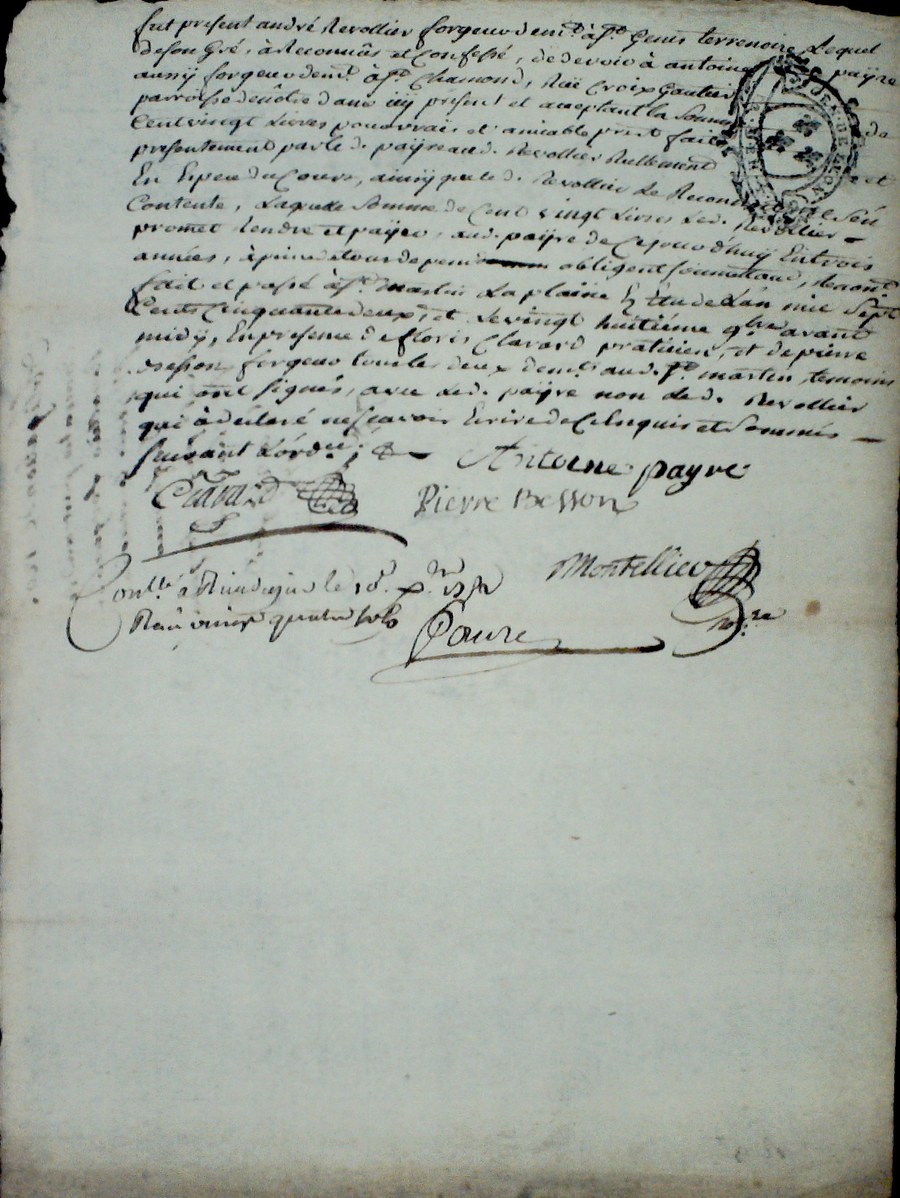 fut present andré Revollier forgeur demt. à St. Genis terrenoire Lequel
de son Gré, à Reconnûs et Confessé, de devoir à antoine payre
aussy forgeur demt. à St. Chamond, Rüe Croix Gautier
parroisse de nôtre dame icy present et acceptant la Somme de
Cent vingt Livres pour vrais et amiable prêt fait
presentement par le d. payre aud. Revollier Réellement et
En Espece du Cours, ainsy que le d. Revollier Le Reconnoit et s'en
Contente, Laquelle Somme de Cent vingt Livres Led. Revollier
promet Rendre et payer, aud. payre de Ce jour d'huÿ En trois
années, à peine de tous depens obligent soumettant, Renonct
fait et passé à St. Martin La plaine Etude L'an mil Sept
Cents Cinquante deux, et Le vingt huitiéme 9bre avant
midÿ, En presence de floris Clavard praticien, et de pierre
besson forgeur tous les deux demt. aud. St. martin, temoins
qui ont signés, avec Led. payre non Led. Revollier
qui à déclaré ne sçavoir Ecrire de Ce Enquis et Sommés
suivant L'ordce.
Antoine payre
Clavard Pierre Besson
Montellier
Conllé a Rivedegier le 10e. xbre 1752
Receu vingt quatre sols
Faure
nore